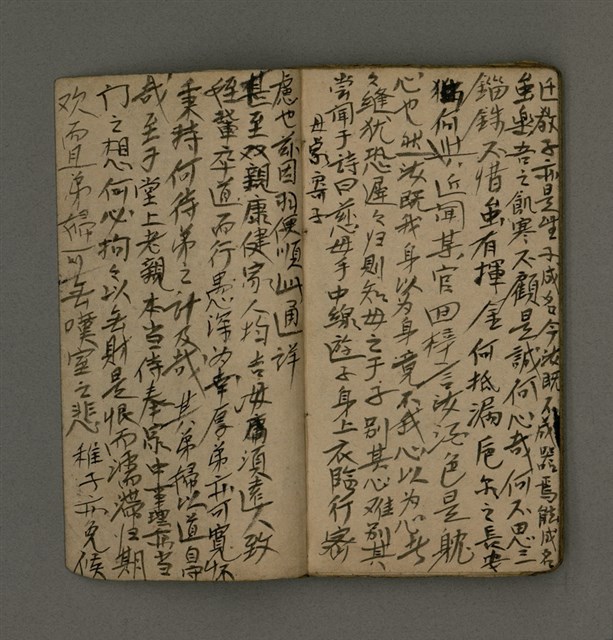 日教子亦是望子成名今汝既不成器焉能成名
虽樂吾之飢寒不顧是誠何心哉何不思三
錙銖不惜虽有揮金何抵漏卮尔之長安
何如近聞某官田梓言汝酒色是耽
心也然汝既我身以為身竟不我心以為心者
々縫犹恐遲々归則知母之于子別其心难别其
嘗聞于詩曰慈母手中線遊子身上衣臨行密
母家寄子
慮也茲因羽便順此通詳
甚至双親康健家人均吉毋庸須遠人致
姪輩卒道而行愚深為幸厚弟亦可寬怀
秉持何待弟之計及哉其弟婦以道自
哉至于堂上老親本当侍奉家中事理亦当
门之想何必拘々以無財是恨而濡滯归期
欢而且弟婦可無嘆室之悲稚子亦免候